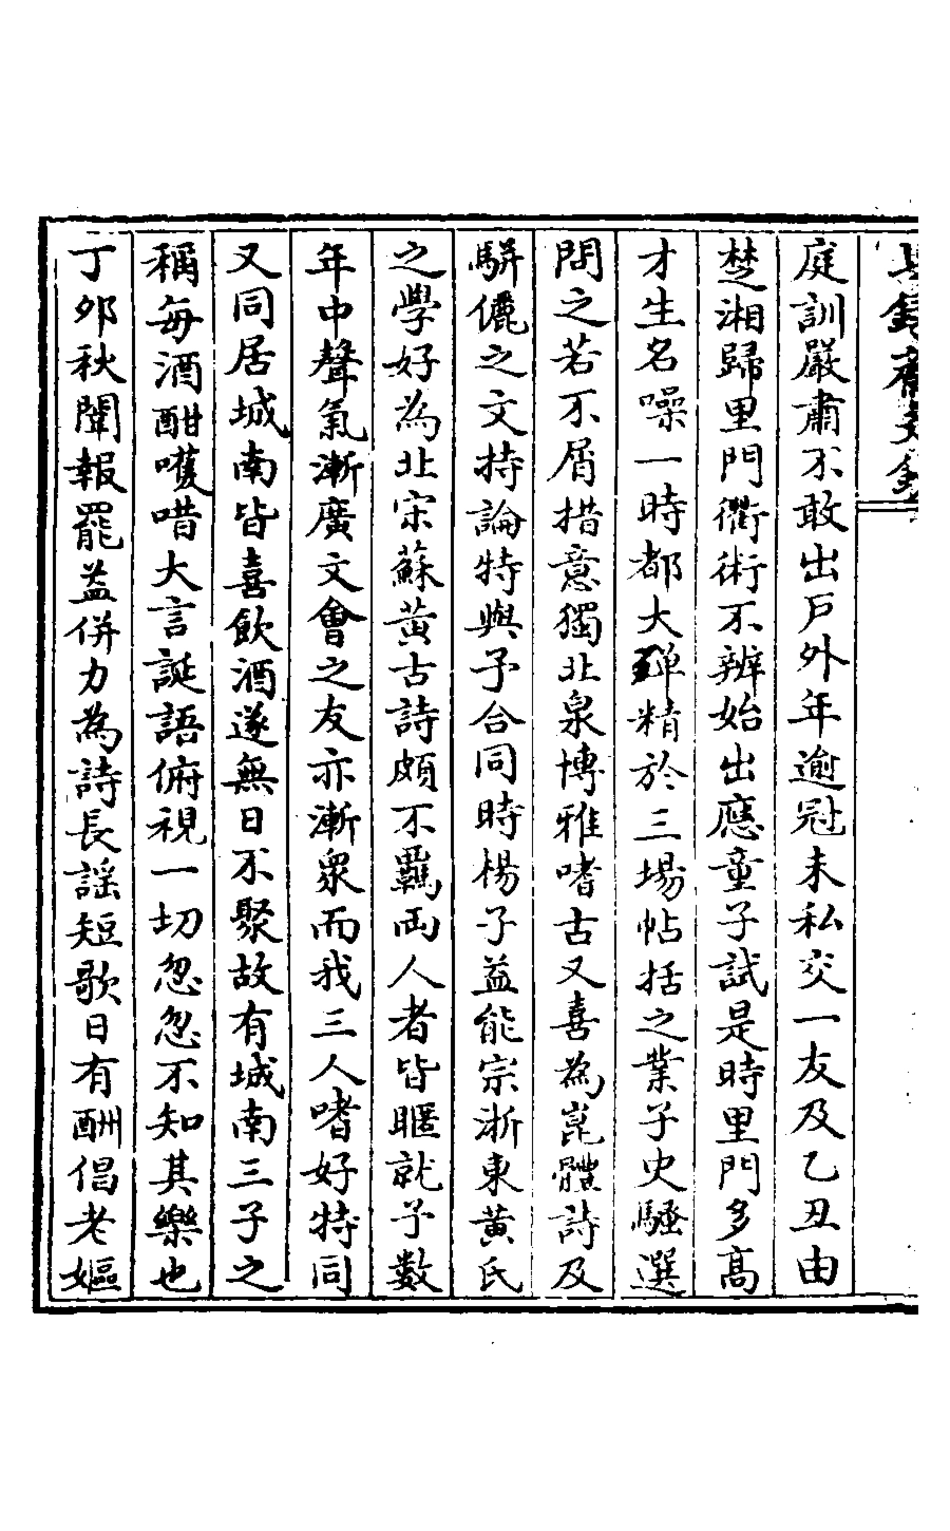 庭訓嚴肅不敢出戶外年逾冠未私交一友及乙丑由
楚湘歸里門衢術不辨始出應童子試是時里門多高
才生名噪一時都大殫精於三場帖括之業子史騷選
間之若不屑措意獨北泉博雅嗜古又喜為崑體詩及
駢儷之文持論特與予合同時楊子益能宗浙東黃氏
之學好為北宋蘇黃古詩頗不羈兩人者皆暱就予數
年中聲氣漸廣文會之友亦漸衆而我三人嗜好特同
又同居城南皆喜飲酒遂無日不聚故有城南三子之
稱每酒酣嚄唶大言誕語俯視一切忽忽不知其樂也
丁夘秋闈報罷益併力為詩長謡短歌日有酬倡老嫗